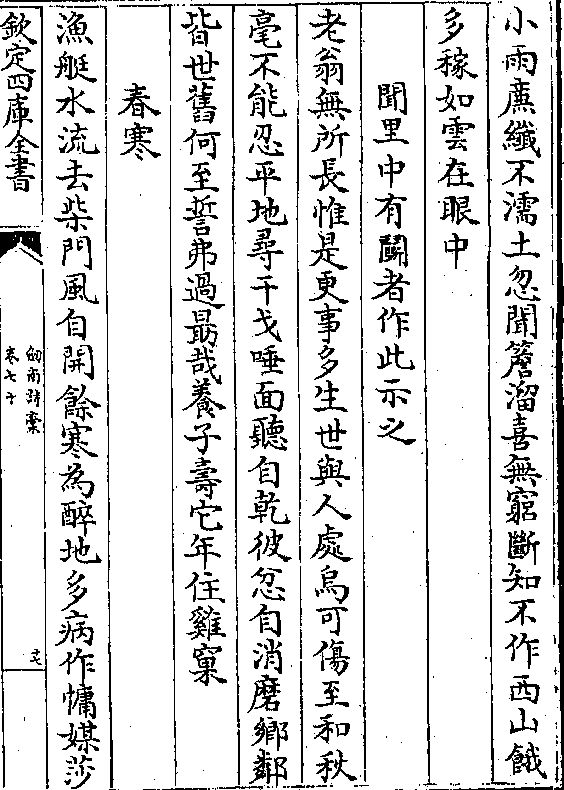 小雨㢘纎不濡土忽聞簷溜喜無窮斷知不作西山餓
多稼如雲在眼中
聞里中有鬬者作此示之
老翁無所長惟是更事多生世與人處烏可傷至和秋
毫不能忍平地尋干戈唾面聽自乾彼忿自消磨鄉鄰
皆世舊何至誓弗過朂哉養子壽它年住雞窠
春寒
漁艇水流去柴門風自開餘寒為醉地多病作慵媒莎
欽定四庫全書
劒南詩藁
卷七十